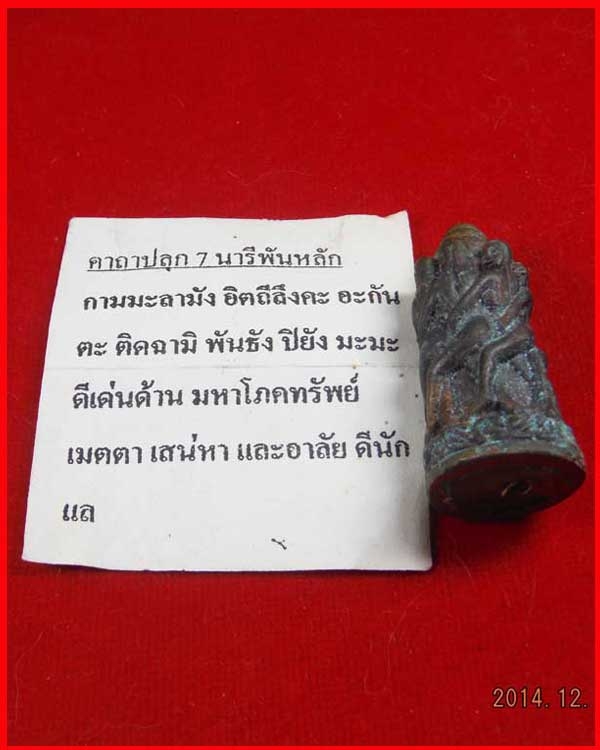 คาถาปลุก 7 นารีพันหลัก
กามมะลามัง อิตถีลึงคะ อะกัน
ตะ ติดฉามิ พันธัง ปิยัง มะมะ
ดีเด่นด้าน มหาโภคทรัพย์
เมตตา เสน่หา และอาลัย ดีนัก
แล
2014.12.